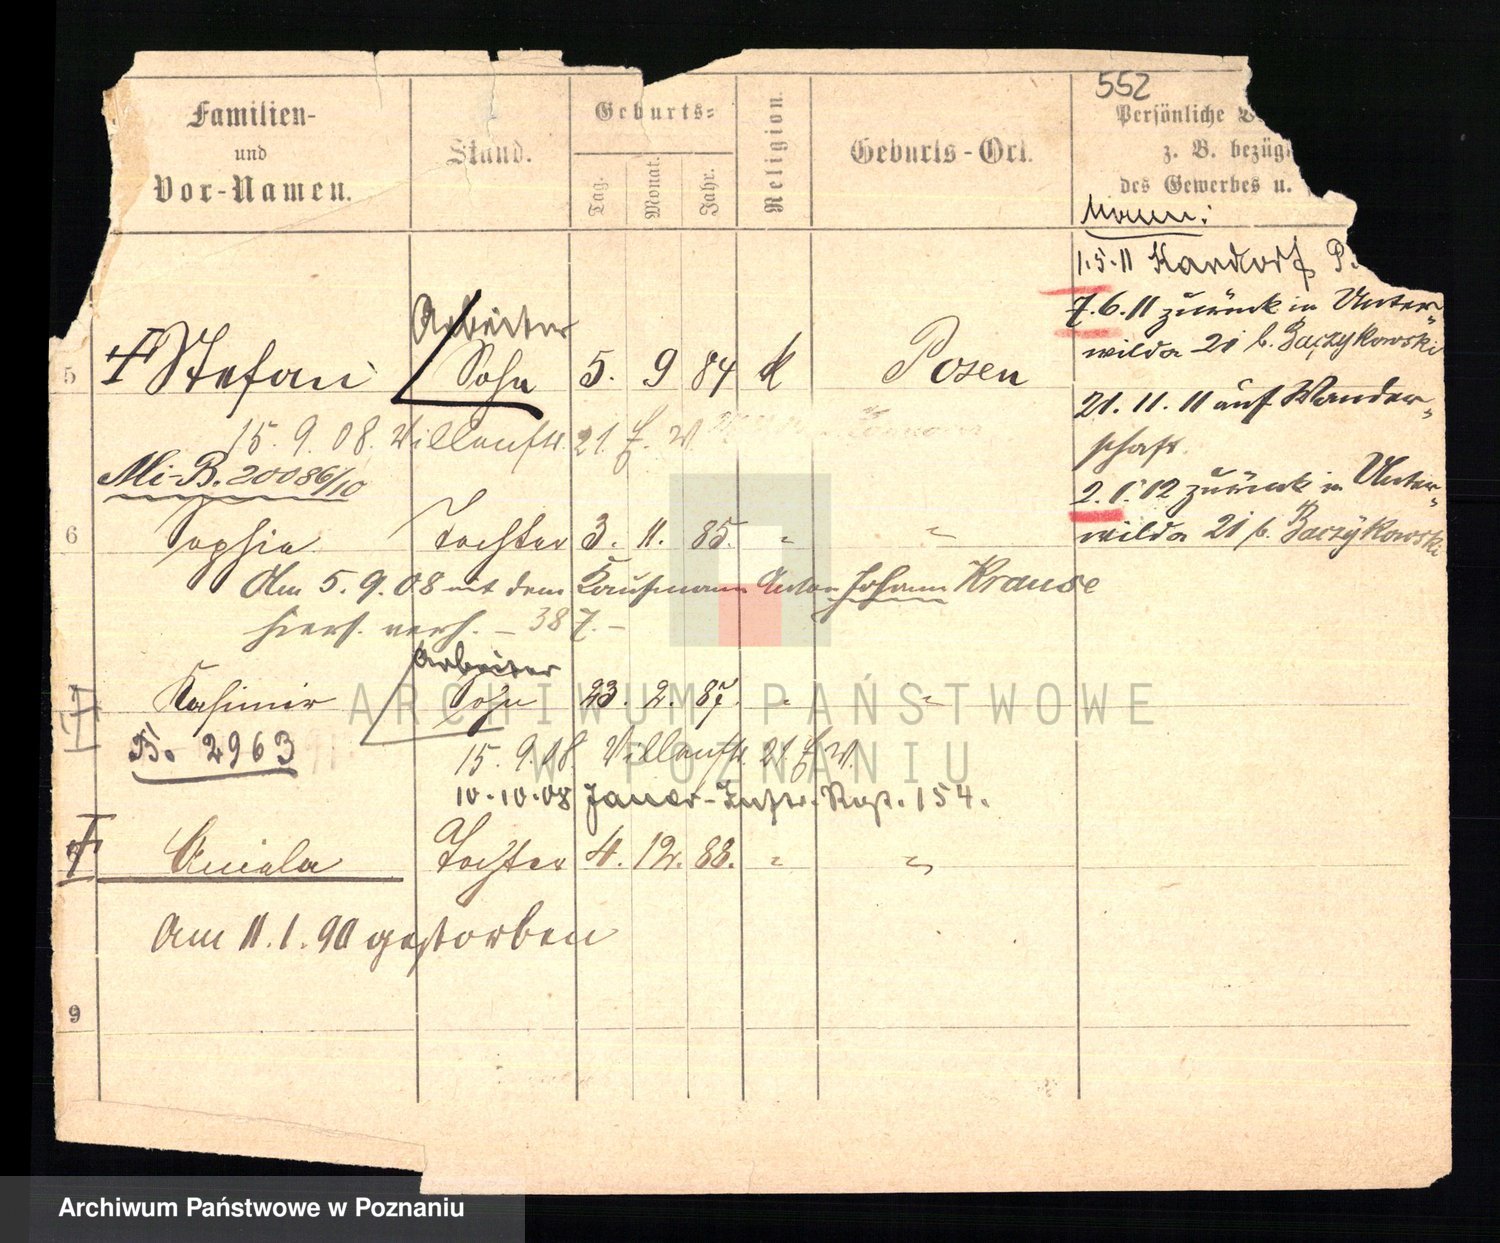 552
Familien-
und
Vor-Namen.
Stand.
Geburts=
Tag.
Monat.
Jahr.
Religion.
Geburts-Ort.
Persönliche
z. B. bezügl
des Gewerbes u.
Mann:
1.5.11 P.
7.6.11 zurück in Unter-
wilda 21 b. Baczykowski
21.11.11 auf Wander-
schaft.
2.1.12 zurück in Unter-
wilda 21 b. Baczykowski
Arbeiter
5 Stefan Sohn 5. 9 84 k Posen
15.9.08. 21. W
Mi-B. 20086/10
6 Sophie Tochter 3. 11. 85. " "
Am 5.9.08 mit dem Kaufmann Anton Johann Krause
hiers. verh. - 387. -
Arbeiter
Kasimir Sohn 23. 2. 87. " "
B. 2963
15.9.08. 21 W.
10.10.08 Jauer-Inftr. Reg. 154.
Aniela Tochter 4. 12. 88. " "
Am 11.1.90 gestorben
9
ARCHIWUM PAŃSTWOWE
W POZNANIU
Archiwum Państwowe w Poznaniu